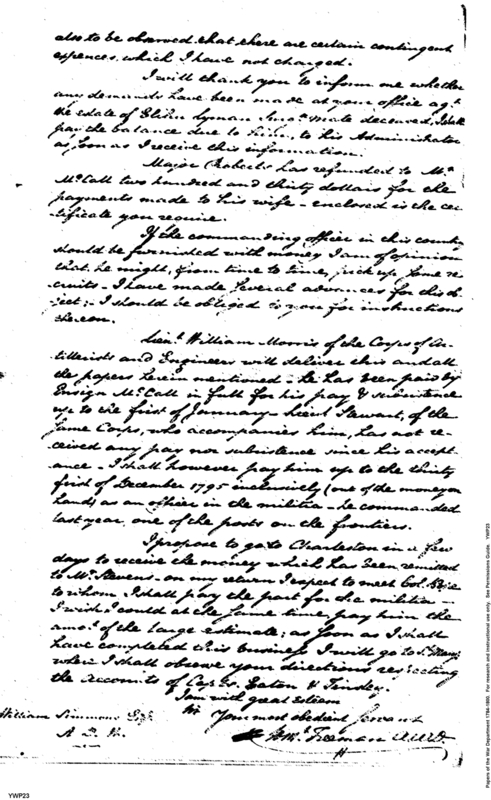 also to be observed that there are certain contingent
expences which I have not charged.
I will thank you to inform me whether
any demands have been made at your office agt.
the estate of Elihu Lyman Surgs. mate deceased, I shall
pay the balance due to him, to his Administrator
as soon as I receive this information.
Major Roberts has refunded to Mr.
McCall two hundred and thirty dollars for the
payments made to his wife - enclosed is the cer-
tificate you require.
If the commanding officer in this country
should be furnished with money I am of opinion
that he might, from time to time, pick up some re-
cruits - I have made several advances for this ob-
ject; - I should be obliged to you for instructions
thereon.
Lieut. William Morris of the Corps of Ar-
tillerists and Engineers will deliver this and all
the papers herein mentioned - he has been paid by
Ensign McCall in full for his pay & subsistence
up to the first of January - Lieut Stewart, of the
same Corps, who accompanies him, has not re-
ceived any pay nor subsistence since his accept-
ance - I shall however pay him up to the thirty
first of December 1795 inclusively (out of the money on
hand) as an officer in the militia - he commanded
last year, one of the posts on the frontiers.
I propose to go to Charleston in a few
days to receive the money which has been remitted
to Mr. Stevens - on my return I expect to meet Col.
to whom I shall pay the part for the militia -
I wish I could at the same time, pay him the
amot. of the large estimate; as soon as I shall
have completed this business I will go to St. Marys
where I shall observe your directions respecting
the Accounts of Eaton & Tinsley.
I am with great esteem
Sir Your most obedient servant
Freeman AWD
William Simmons Esqr.
A. D. W.
YWP23
Papers of the War Department 1784-1800. For research and instructional use only. See Permissions Guide. YWP23